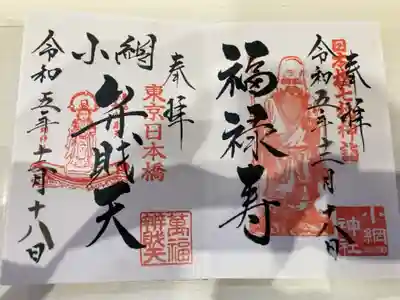 奉拝
日本橋七福神詣
福禄寿
令和五年十二月十八日
小網神社
奉拝
東京日本橋
小網
弁財天
萬福弁財天
令和五年十二月十八日